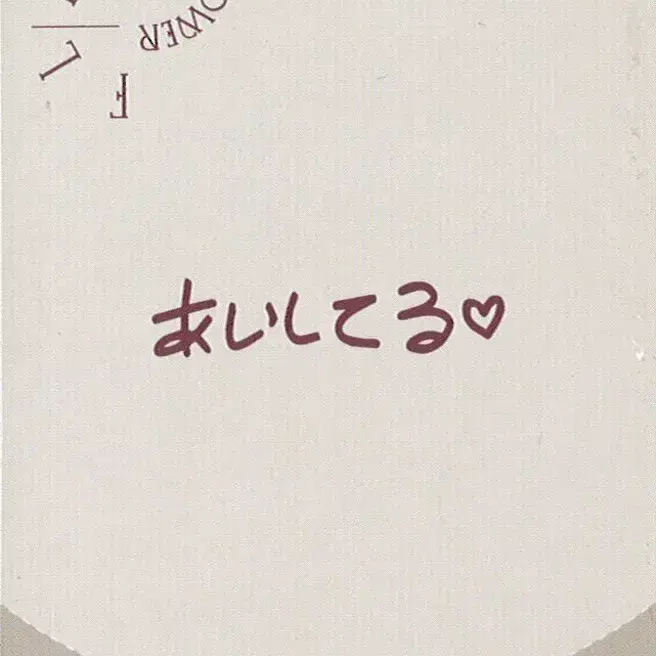 FL
OWER
あいしてる♡